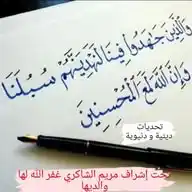 وَالَّذِينَ جَهَدُوا فِينَا لَنَهْدِيَنَّهُمْ سُبُلَنَا
وَإِنَّ اللَّهَ لَمَعَ الْمُحْسِنِينَ
تحديات
دينية و دنيوية
تحت إشراف مريم الشاكري غفر الله لها
ولوالديها